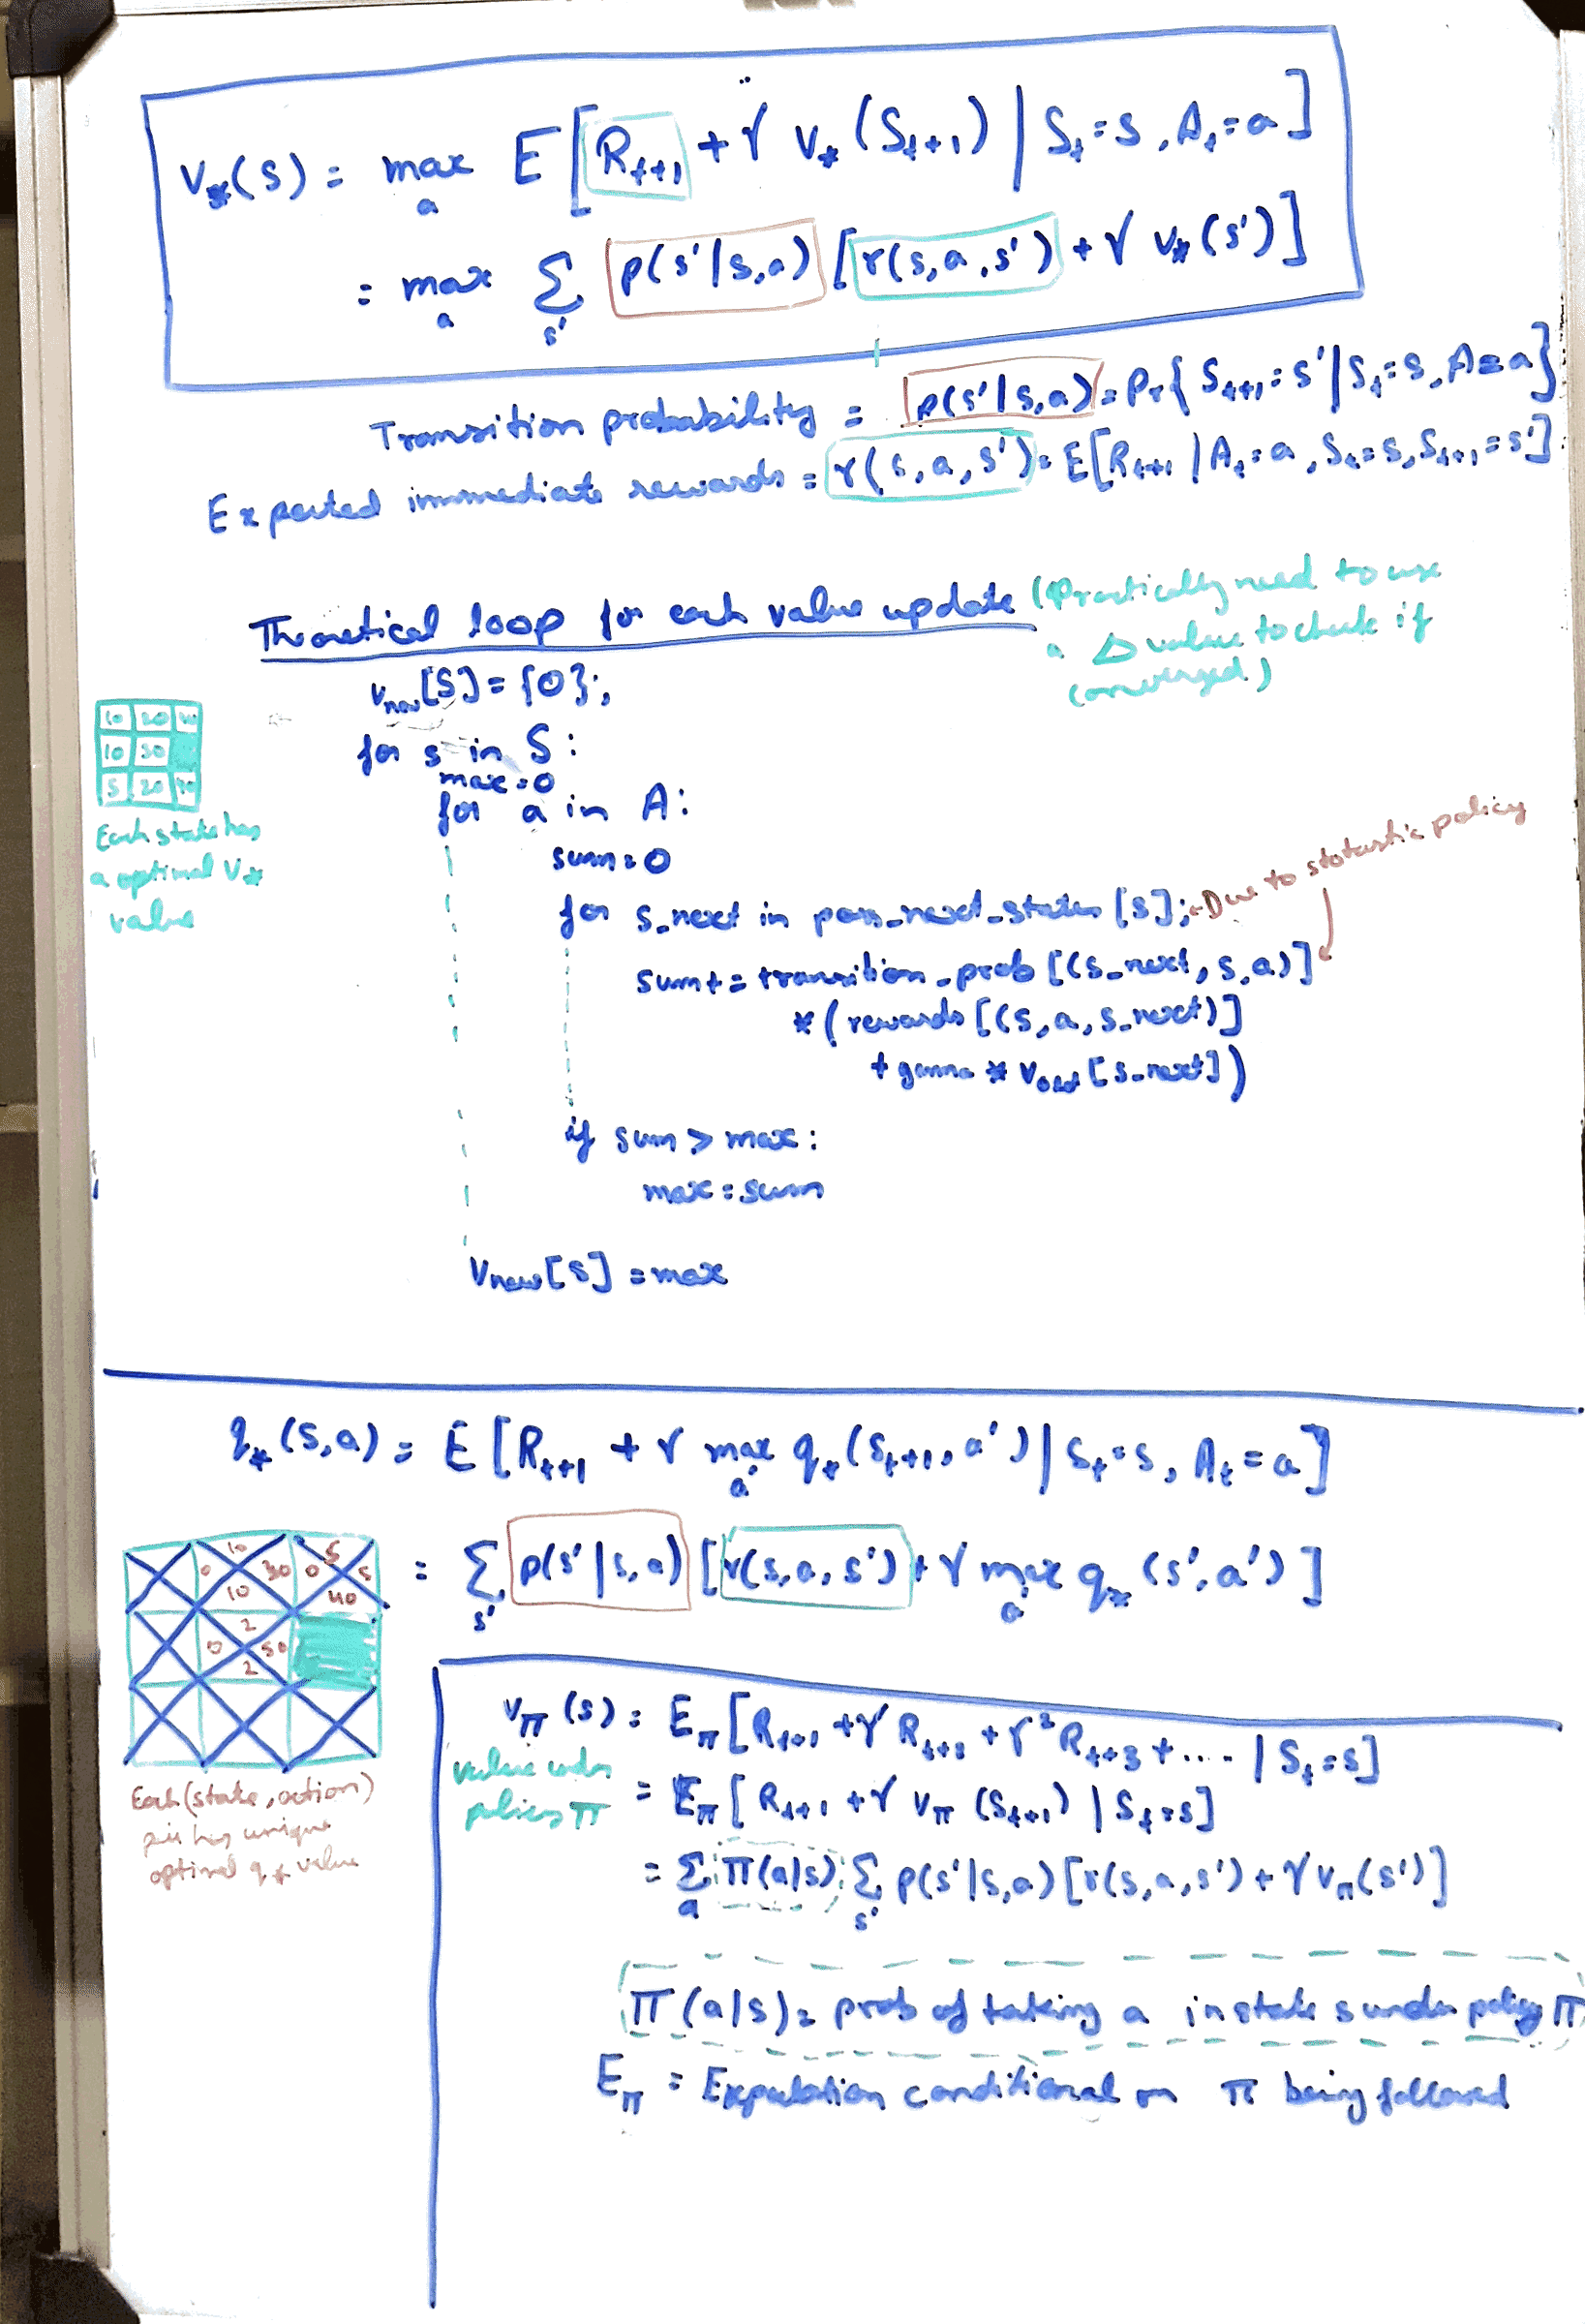 v*(s) = max_a E[R_t+1 + γ v*(S_t+1) | S_t=s, A_t=a]
= max_a Σ_s' p(s'|s,a) [r(s,a,s') + γ v*(s')]
Transition probability = p(s'|s,a) = Pr{S_t+1=s'|S_t=s, A=a}
Expected immediate rewards = r(s,a,s') = E[R_t+1 | A_t=a, S_t=s, S_t+1=s']
Theoretical loop for each value update (Practically need to use
a Δ value to check if
converged.)
v_new[S] = {0};
for s in S:
max=0
for a in A:
sum=0
for s_next in poss_next_states[s]: ←Due to stotastic policy
sum+= transition_prob[(s_next,s,a)]
*(rewards[(s,a,s_next)]
+ gamma * v_old[s_next])
if sum > max:
max=sum
v_new[s] = max
10 20
10 30
5 20
Each state has
a optimal v*
value
q*(s,a) = E[R_t+1 + γ max_a' q*(S_t+1,a') | S_t=s, A_t=a]
= Σ_s' p(s'|s,a) [r(s,a,s') + γ max_a' q*(s',a')]
10 5
0 30 0 5
10 40
2
0 50
2
Each (state, action)
has unique
optimal q* value
v_π(s) = E_π[R_t+1 + γ R_t+2 + γ²R_t+3 + .... | S_t=s]
value under
policies π
= E_π[R_t+1 + γ v_π(S_t+1) | S_t=s]
= Σ_a π(a|s) Σ_s' p(s'|s,a)[r(s,a,s') + γ v_π(s')]
π(a|s) = prob of taking a in state s under policy π
E_π = Expectation conditional on π being followed